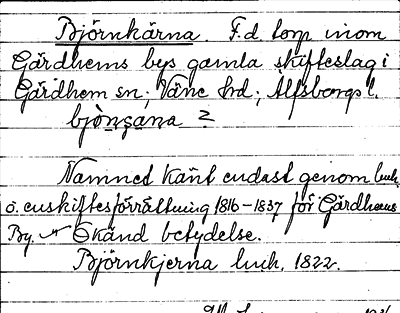 Björnkärna. F.d. torp inom
Gärdhems bys gamla skifteslag i
Gärdhem sn; Väne hd; Älfsborgs l.
bjònṣana ?
Namnet känt endast genom luch.
o. enskiftesförrättning 1816-1837 för Gärdhems
By. Okänd betydelse.
Björnkjerna luch, 1822.